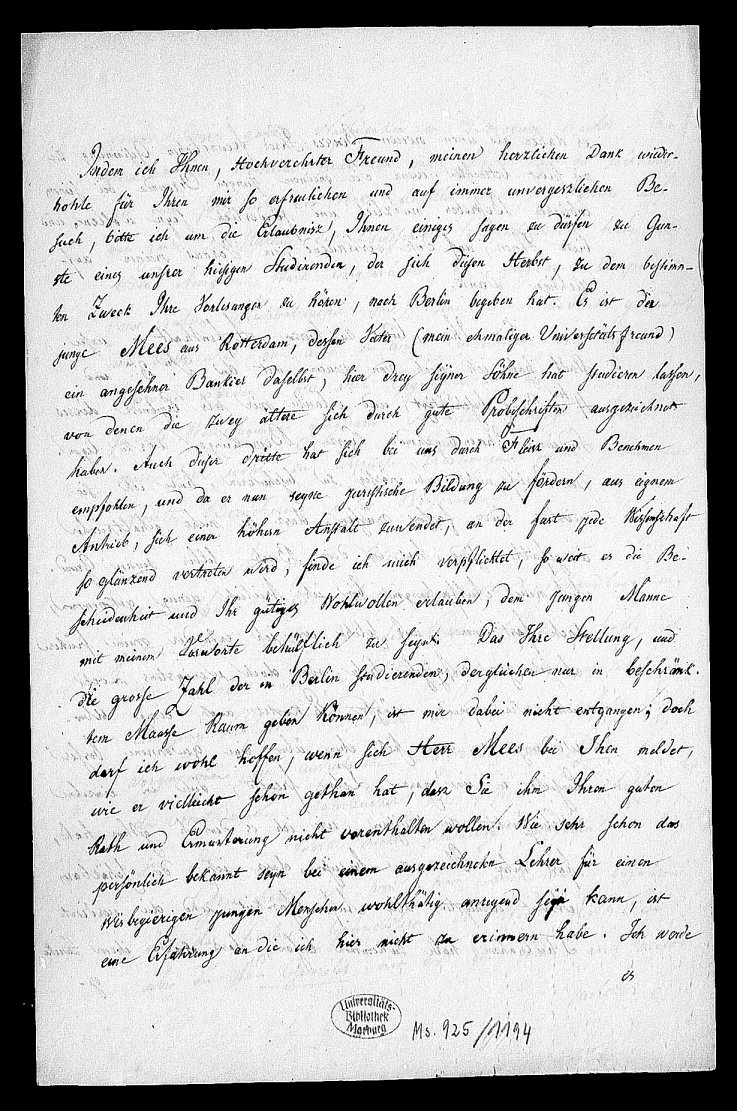 Indem ich Ihnen, Hochverehrter Freund, meinen herzlichen Dank wieder-
hohle für Ihren mir so erfreulichen und auf immer unvergeszlichen Be-
such, bitte ich um die Erlaubnisz, Ihnen einiges sagen zu dürfen zu Gun-
ste eines unsrer hiesigen Studirenden, der sich diesen Herbst, zu dem bestimm-
ten Zweck Ihre Vorlesungen zu hören, nach Berlin begeben hat. Es ist der
junge Mees aus Rotterdam, dessen Vater (mein ehmaliger Universitätsfreund)
ein angesehner Bankier daselbst, hier drey seiner Söhne hat studieren lassen,
von denen die zwey ältere sich durch gute Probeschriften ausgezeichnet
haben. Auch dieser dritte hat sich bei uns durch Fleisz und Benehmen
empfohlen, und da er nun seyne juristische Bildung zu fördern, aus eignem
Antrieb, sich einer höhern Anstalt zuwendet, an der fast jede Wissenschaft
so glänzend vertreten wird, finde ich mich verpflichtet, so weit es die Be-
scheidenheit und Ihr gütiges Wohlwollen erlauben, dem jungen Manne
mit meinem Vorworte behülflich zu seyn. Das Ihre Stellung, und
die grosse Zahl der in Berlin studierenden, dergleichen nur in beschränk-
tem Maasse Raum geben können, ist mir dabei nicht entgangen; doch
darf ich wohl hoffen, wenn sich Herr Mees bei Ihen meldet,
wie er vielleicht schon gethan hat, dasz Sie ihm Ihren guten
Rath und Ermunterung nicht vorenthalten wollen. Wie sehr schon das
persönlich bekannt seyn bei einem ausgezeichneten Lehrer für einen
wisbegierigen jungen Menschen wohlthätig anregend seyn kann, ist
eine Erfahrung an die ich hier nicht zu erinnern habe. Ich werde
es
Universitäts-
Bibliothek
Marburg
Ms. 925/1194